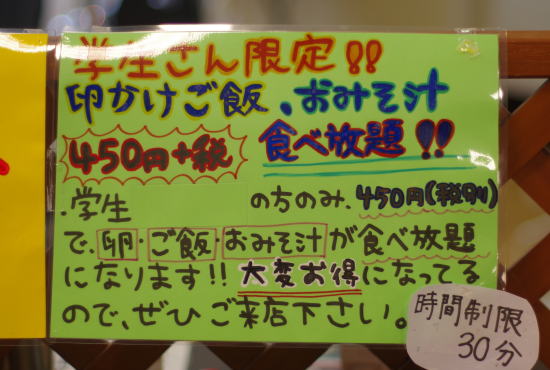 学生さん限定!!
卵かけご飯、おみそ汁
450円+税 食べ放題!!
.学生 の方のみ、450円(税別)
で、卵・ご飯・おみそ汁が食べ放題
になります!! 大変お得になってる
ので、ぜひご来店下さい。
時間制限
30分